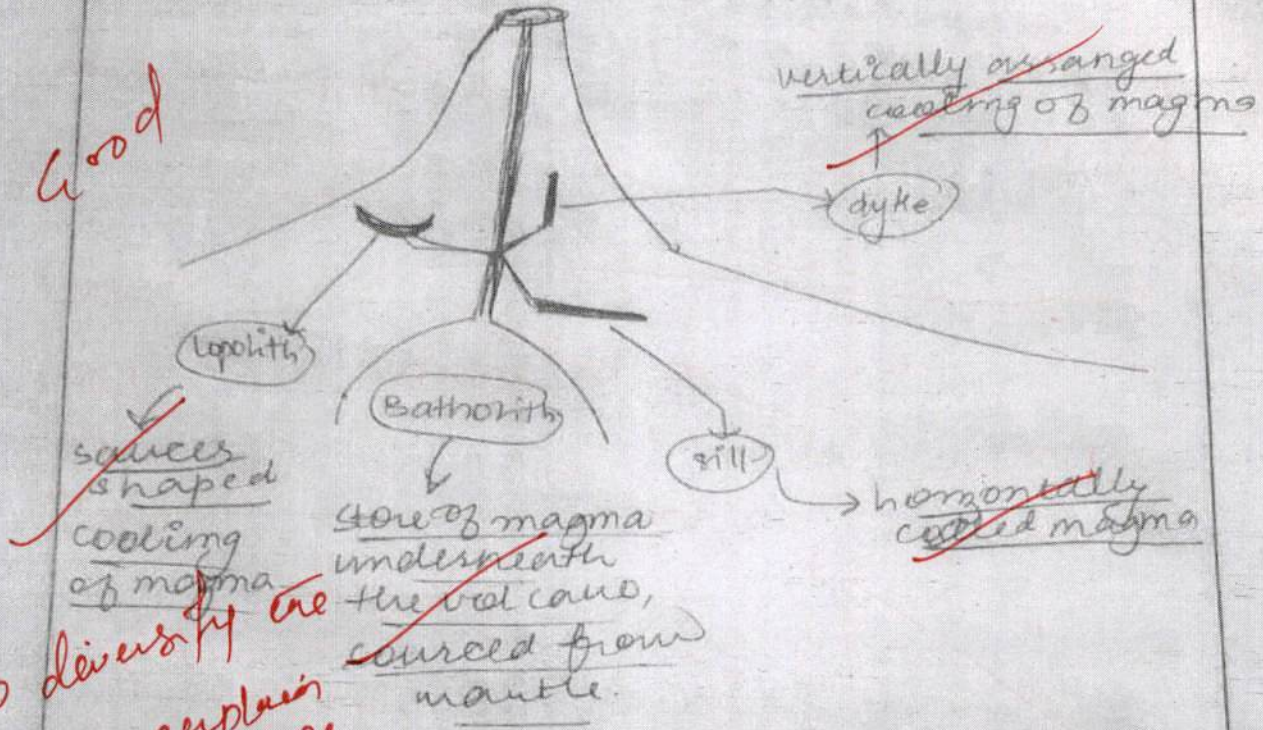 Good
vertically arranged
cooling of magma
dyke
Lopolith
Batholith
sill
saucer
shaped
cooling
of magma
store of magma
underneath
the volcano,
sourced from
mantle.
horizontally
cooled magma
diversify the
explain